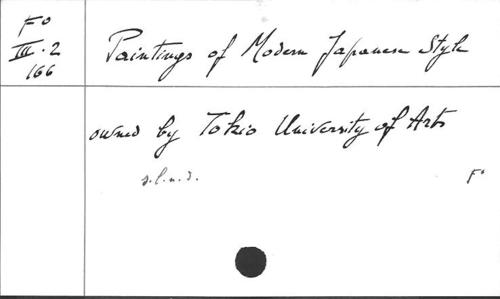 F°
III.2
166
Paintings of Modern Japanese Style
owned by Tokio University of Arts
s.l.n.d.
F°